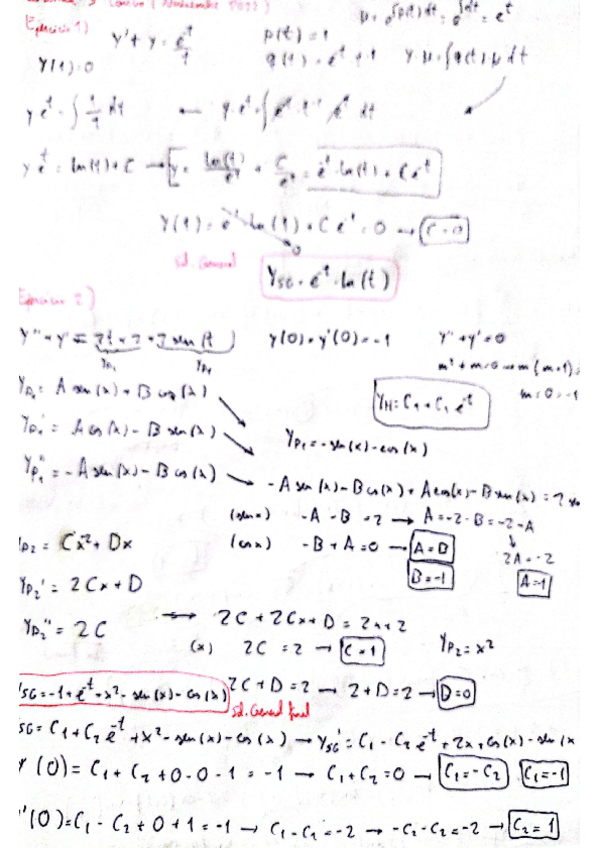 Ejercicio 1)
y' + y = e^-t / t
p(t) = 1
μ = e^∫p(t)dt = e^∫dt = e^t
Y(1) = 0
y·μ = ∫q(t)μ dt
y e^t = ∫ 1/t dt
y e^t = ln(t) + C → y = ln(t)/e^t + C/e^t = e^-t ln(t) + C e^-t
Y(1) = e^-1 ln(1) + C e^-1 = 0 → C = 0
0
Sol. General
Y_SG = e^-t · ln(t)
Ejercicio 2)
Y'' + Y' = 2t + 2 + 2 sen(t)
y(0) = y'(0) = -1
y'' + y' = 0
m² + m = 0 → m(m+1)
m = 0, -1
Y_P1 = A sen(x) + B cos(x)
Y_H = C1 + C2 e^-t
Y_P1' = A cos(x) - B sen(x)
Y_P1 = -sen(x) - cos(x)
Y_P1'' = -A sen(x) - B cos(x)
-A sen(x) - B cos(x) + A cos(x) - B sen(x) = 2 sen
(sen x) -A - B = 2 → A = -2 - B = -2 - A
(cos x) -B + A = 0 → A = B
2A = -2
B = -1
A = -1
Y_P2 = Cx² + Dx
Y_P2' = 2Cx + D
Y_P2'' = 2C
2C + 2Cx + D = 2x + 2
(x) 2C = 2 → C = 1
Y_P2 = x²
Y_SG = -1 + e^-t + x² - sen(x) - cos(x)
2C + D = 2 → 2 + D = 2 → D = 0
Sol. General final
SG = C1 + C2 e^-t + x² - sen(x) - cos(x) → Y_SG' = C1 - C2 e^-t + 2x + cos(x) - sen(x
Y(0) = C1 + C2 + 0 - 0 - 1 = -1 → C1 + C2 = 0 → C1 = -C2 C1 = -1
'(0) = C1 - C2 + 0 + 1 = -1 → C1 - C2 = -2 → -C2 - C2 = -2 → C2 = 1